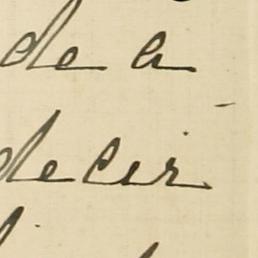 de a
decir